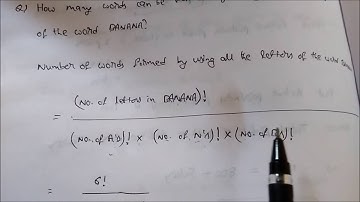 Q) How many words can be
of the word BANANA?
Number of words formed by using all the letters of the word
= (No. of letters in BANANA)!
(No. of A's)! × (No. of N's)! × (No. of B's)!
= 6!